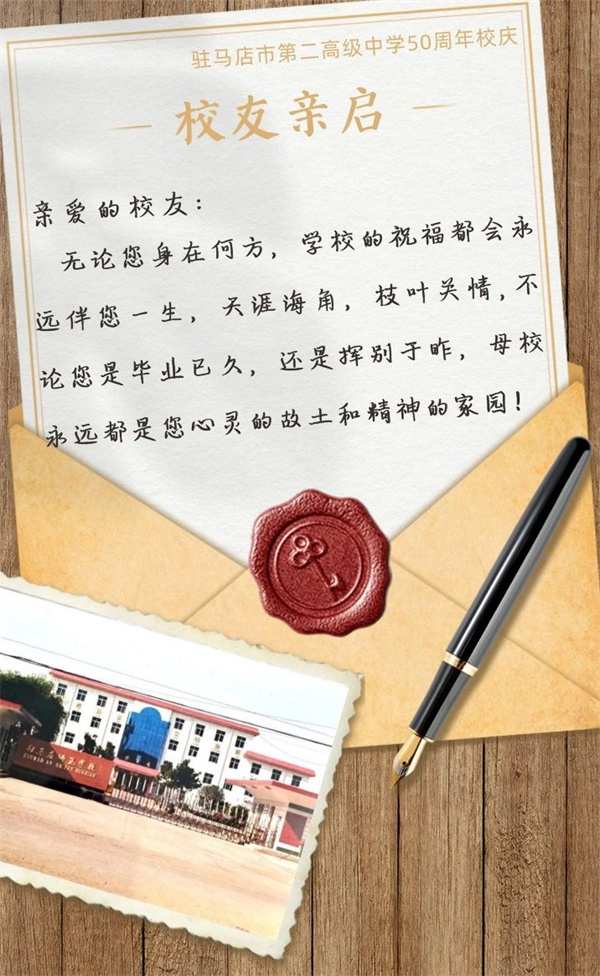 驻马店市第二高级中学50周年校庆
校友亲启
亲爱的校友：
无论您身在何方，学校的祝福都会永
远伴您一生，天涯海角，枝叶关情，不
论您是毕业已久，还是挥别于昨，母校
永远都是您心灵的故土和精神的家园！